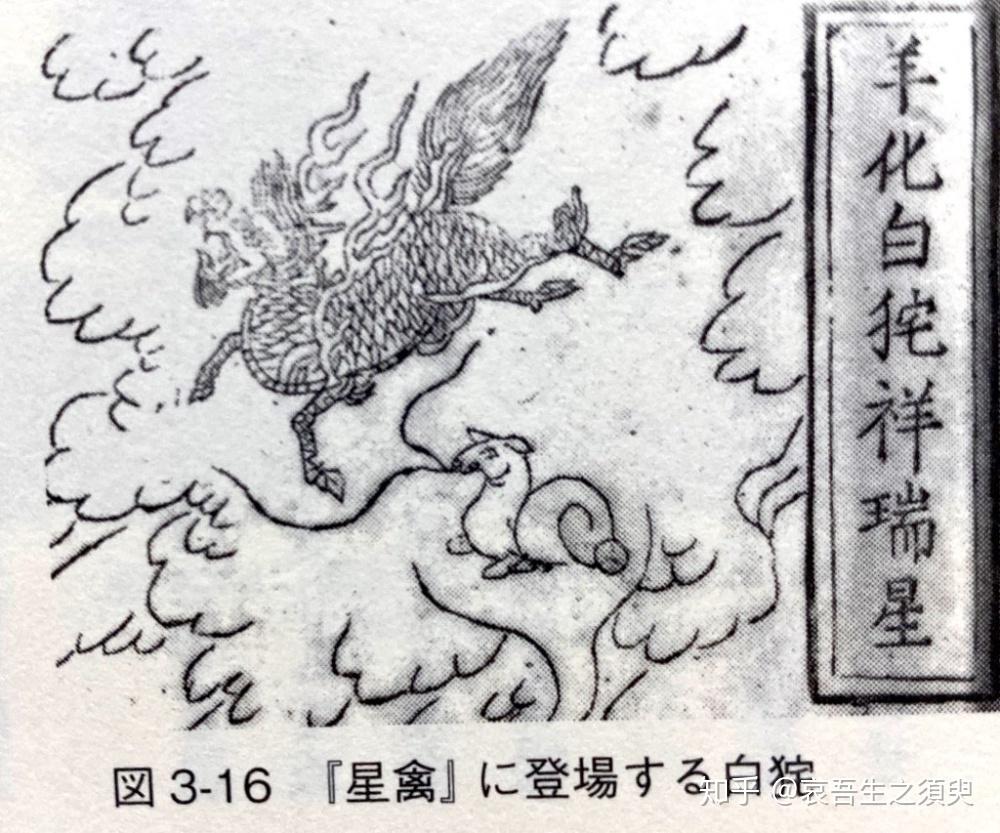 羊化白狏祥瑞星
図 3-16 『星禽』に登場する白狏
知乎 @哀吾生之須臾